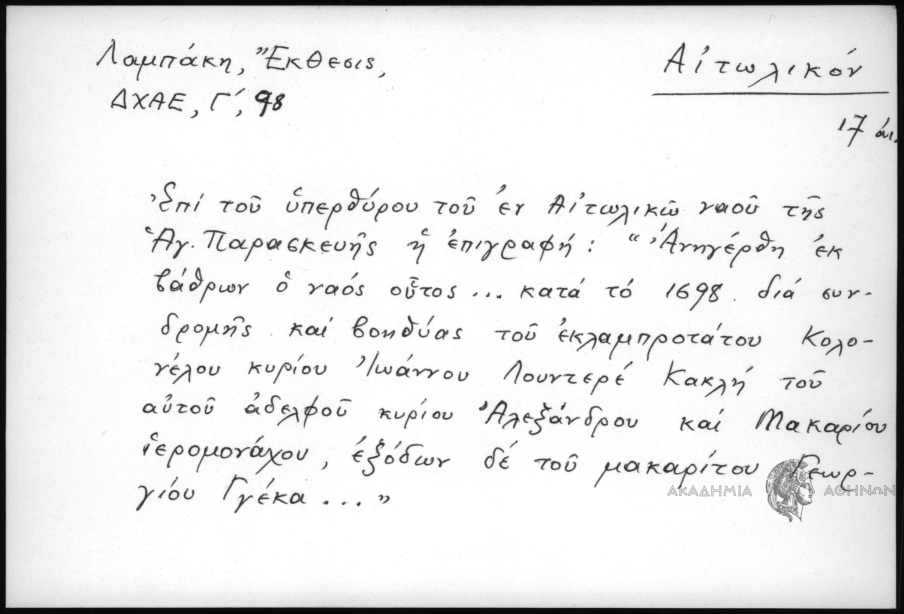 Λαμπάκη, Ἔκθεσις,
ΔΧΑΕ, Γ΄, 98
Αἰτωλικόν
17 αι.
Ἐπί τοῦ ὑπερθύρου τοῦ ἐν Αἰτωλικῶ ναοῦ τῆς
Ἁγ. Παρασκευῆς ἡ ἐπιγραφή: "Ἀνηγέρθη ἐκ
βάθρων ὁ ναός οὗτος ... κατά τό 1698 διά συν-
δρομῆς καί βοηθύας τοῦ ἐκλαμπροτάτου Κολο-
νέλου κυρίου Ἰωάννου Λουντερέ Κακλή τοῦ
αὐτοῦ ἀδελφοῦ κυρίου Ἀλεξάνδρου καί Μακαρίου
ἱερομονάχου, ἐξόδων δέ τοῦ μακαρίτου Γεωρ-
γίου Γγέκα ..."
ΑΚΑΔΗΜΙΑ ΑΘΗΝΩΝ